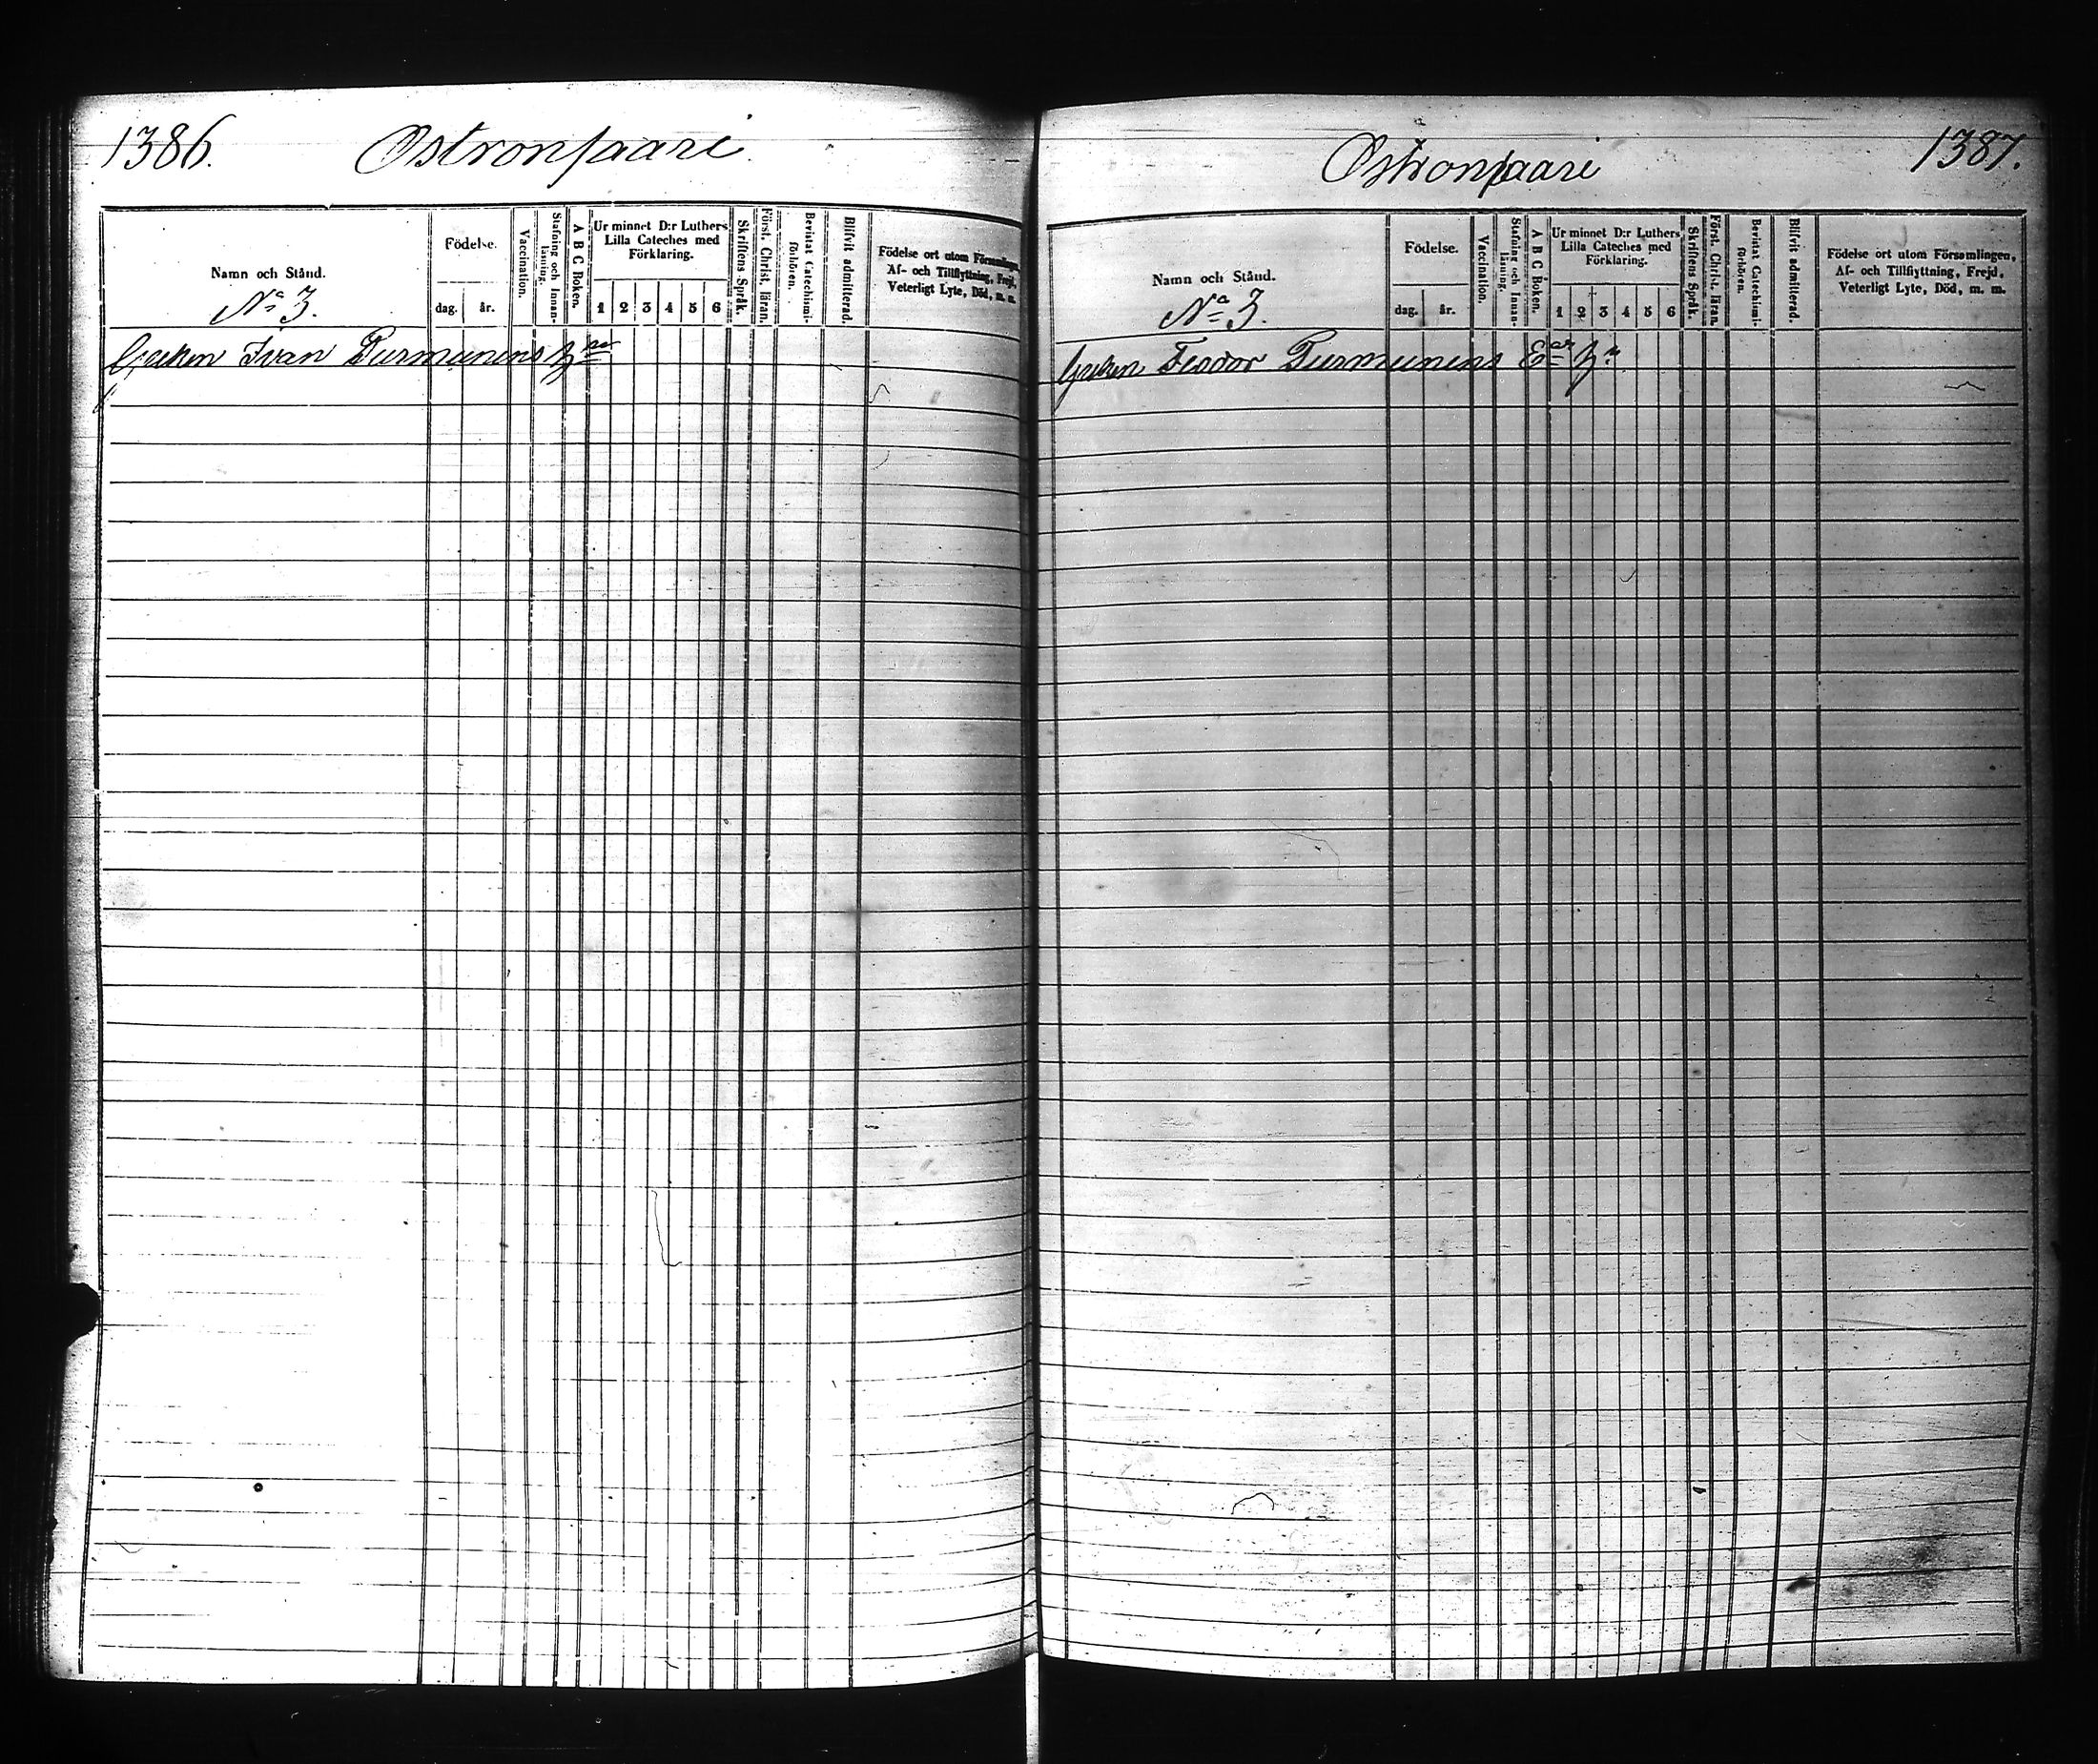 1386.
Ostronsaari
Namn och Stånd.
No 3.
Födelse.
dag. år.
Vaccination.
Stafning och Innan-läsning.
A B C Boken.
Ur minnet D:r Luthers
Lilla Cateches med
Förklaring.
1 2 3 4 5 6
Skriftens Språk.
Först. Christ. läran.
Bevistat Catechismi-förhören.
Blifvit admitterad.
Födelse ort utom Församlingen,
Af- och Tillflyttning, Frejd,
Veterligt Lyte, Död, m. m.
Greken Ivan Purmunens
1387.
Ostronsaari
Namn och Stånd.
No 3.
Födelse.
dag. år.
Vaccination.
Stafning och Innan-läsning.
A B C Boken.
Ur minnet D:r Luthers
Lilla Cateches med
Förklaring.
1 2 3 4 5 6
Skriftens Språk.
Först. Christ. läran.
Bevistat Catechismi-förhören.
Blifvit admitterad.
Födelse ort utom Församlingen,
Af- och Tillflyttning, Frejd,
Veterligt Lyte, Död, m. m.
Greken Feodor Purmunens